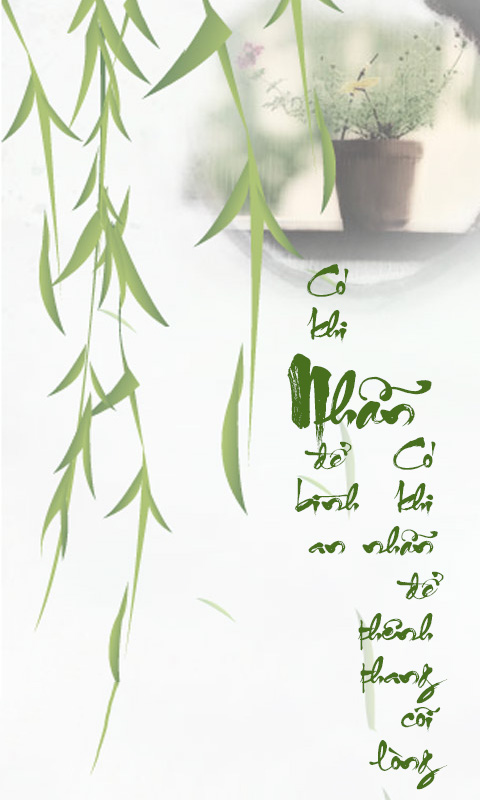 Có
khi
Nhẫn
để
bình
an
Có
khi
nhẫn
để
thênh
thang
cõi
lòng